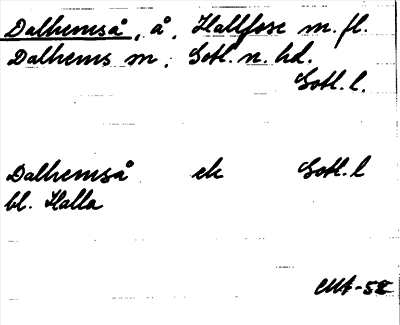 Dalhemså, å, Hallfose m. fl.
Dalhems m, Gotl. n. hd.
Gotl. l.
Dalhemså ek Gotl. l
bl. Halla